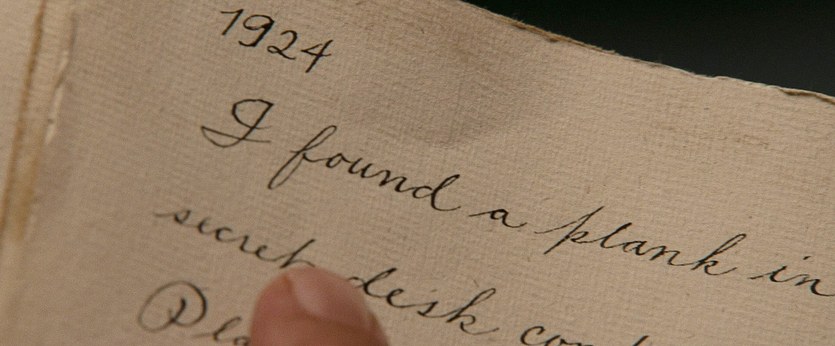 1924
I found a plank in
secret desk